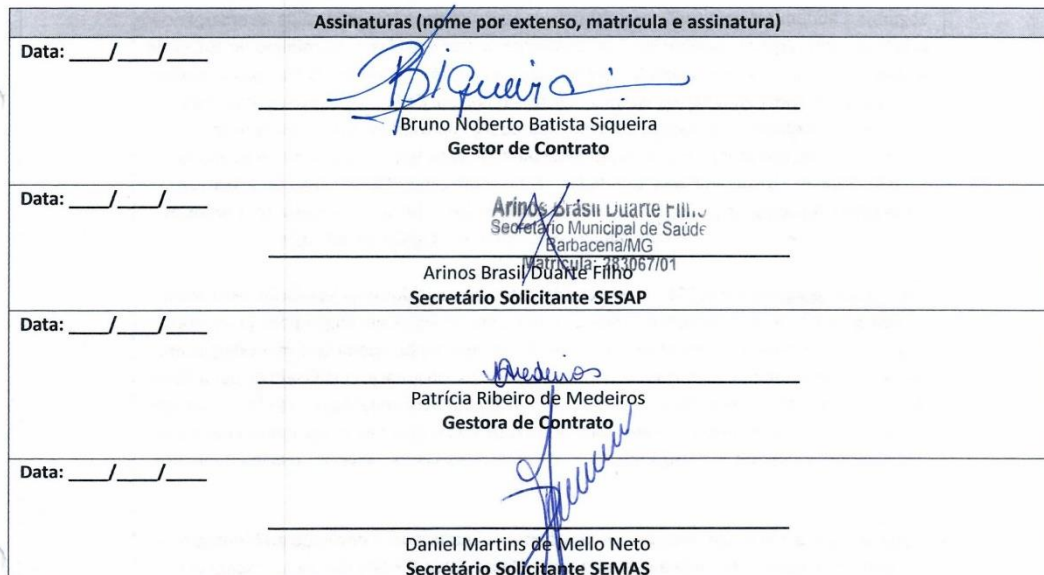 Assinaturas (nome por extenso, matricula e assinatura)
Data: ____/____/____
BSiqueira
Bruno Noberto Batista Siqueira
Gestor de Contrato
Data: ____/____/____
Arinos Brasil Duarte Filho
Secretário Municipal de Saúde
Barbacena/MG
Matrícula: 283067/01
Arinos Brasil Duarte Filho
Secretário Solicitante SESAP
Data: ____/____/____
Medeiros
Patrícia Ribeiro de Medeiros
Gestora de Contrato
Data: ____/____/____
Daniel Martins de Mello Neto
Secretário Solicitante SEMAS